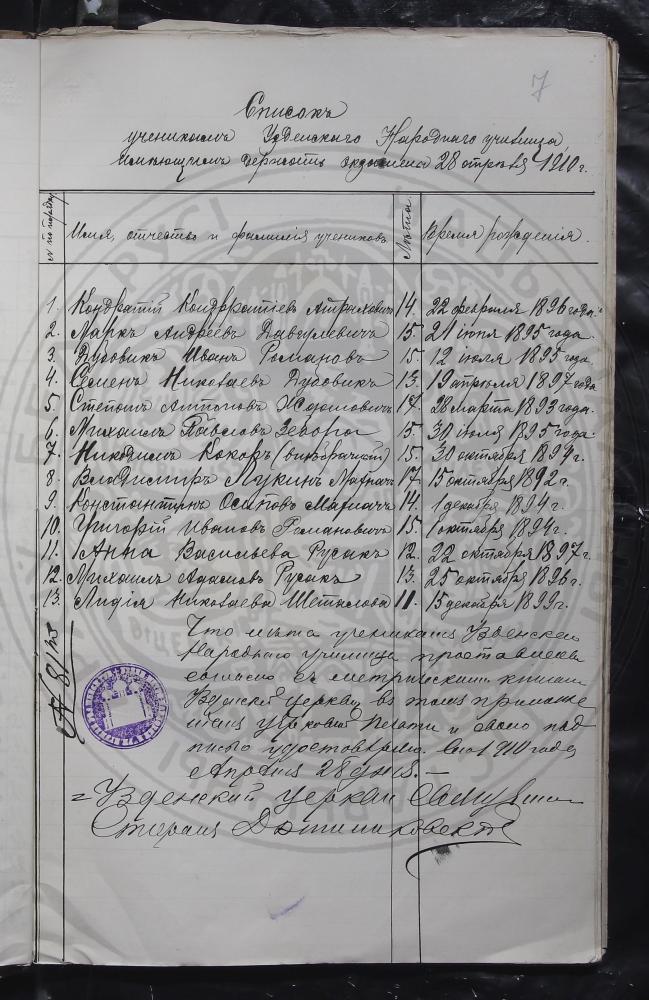 7
Списокъ
ученикамъ Узденскаго Народнаго училища,
имѣющимъ держать экзамены 28 апрѣля 1910 г.
№ по порядку
Имя, отчество и фамилія учениковъ.
Лѣта.
Время рожденія.
1. Кондратій Кондратіевъ Атрахович 14. 22 февраля 1896 года.
2. Маркъ Андреевъ 15. 21 іюня 1895 года.
3. Дубовикъ Иванъ Романовъ 15. 12 іюля 1895 года.
4. Семенъ Николаевъ Дубовикъ 13. 19 апрѣля 1897 года
5. Степанъ Антоновъ Жданович 17. 28 марта 1893 года.
6. Михаилъ Павловъ 15. 30 іюля 1895 года.
7. Никодимъ Кокоръ 15. 30 октября 1894 г.
8. Владимиръ Лукинъ 17. 15 октября 1892 г.
9. Константинъ Осиповъ 14. 1 декабря 1894 г.
10. Григорій Ивановъ Романовичъ 15. 1 октября 1894 г.
11. Анна Васильева Русакъ 12. 22 октября 1897 г.
12. Михаилъ Адамовъ Русакъ 13. 25 октября 1896 г.
13. Лидія Николаева 11. 15 декабря 1899 г.
Что лѣта ученикамъ Узденскаго
Народнаго училища проставлены
согласно съ метрическими книгами
Узденской церкви, въ томъ приложе
ніемъ церковной печати и своею под
писью удостовѣряю. 1910 года
Апрѣля 28 дня.
Узденской церкви